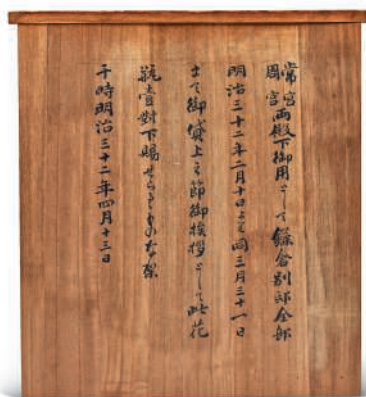 常宮
周宮両殿下御用として鎌倉別邸全部
明治三十二年二月十日より同三月三十一日
まて御貸上之節御挨拶として此花
瓶壹對下賜せら
于時明治三十二年四月十三日